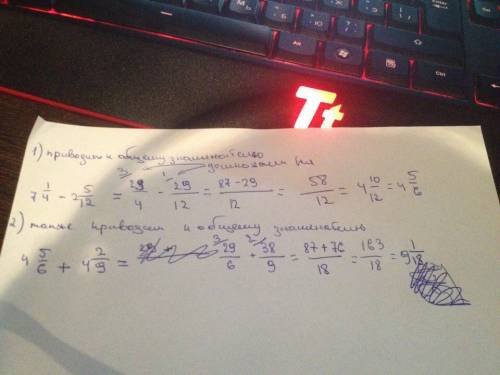 Tt
Ctrl
1) приводим к общему знаменателю
домножаем на
3 1
7 1/4 - 2 5/12 = 29/4 - 29/12 = 87-29/12 = 58/12 = 4 10/12 = 4 5/6
2) также приводим к общему знаменателю
3 2
4 5/6 + 4 2/9 = 29/6 + 38/9 = 87+76/18 = 163/18 = 9 1/18